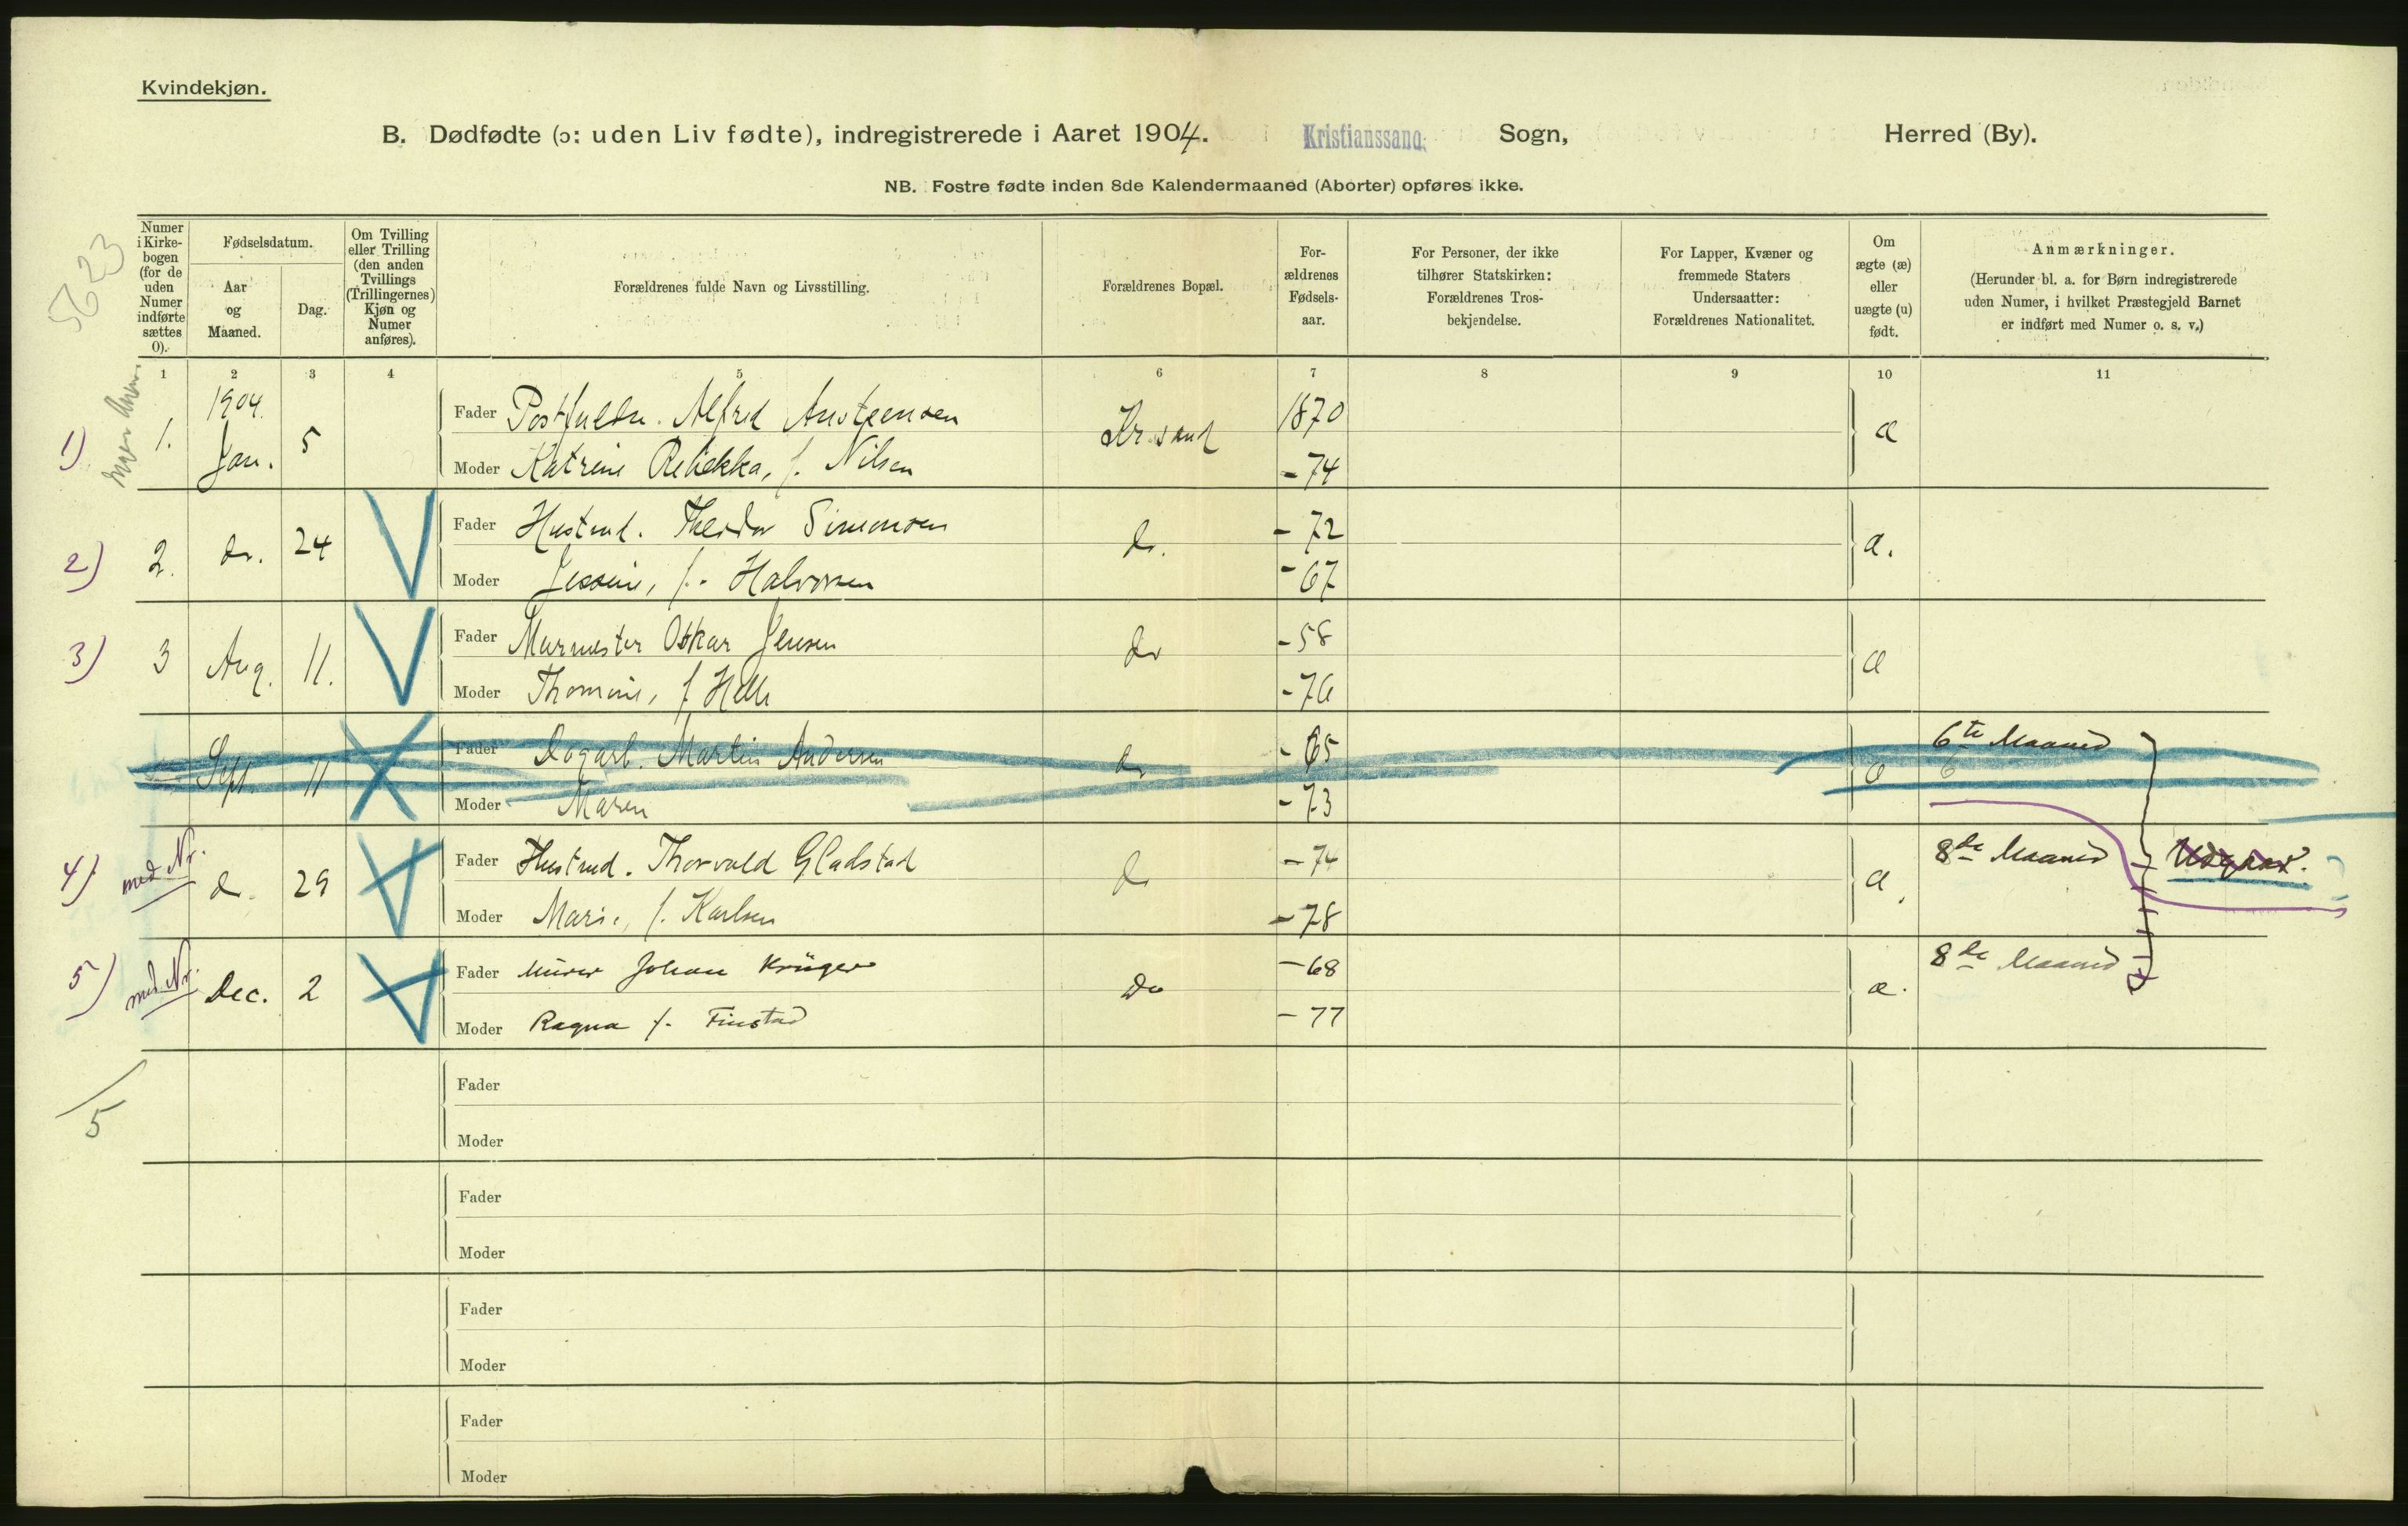 Kvindekjøn.
B. Dødfødte (ɔ: uden Liv fødte), indregistrerede i Aaret 1904. Kristianssand. Sogn, Herred (By).
NB. Fostre fødte inden 8de Kalendermaaned (Aborter) opføres ikke.
5623
Numer i Kirke-bogen (for de uden Numer indførte sættes 0).
Fødselsdatum.
Aar og Maaned.
Dag.
Om Tvilling eller Trilling (den anden Tvillings (Trillingernes) Kjøn og Numer anføres).
Forældrenes fulde Navn og Livsstilling.
Forældrenes Bopæl.
For-ældrenes Fødsels-aar.
For Personer, der ikke tilhører Statskirken: Forældrenes Tros-bekjendelse.
For Lapper, Kvæner og fremmede Staters Undersaatter: Forældrenes Nationalitet.
Om ægte (æ) eller uægte (u) født.
Anmærkninger.
(Herunder bl. a. for Børn indregistrerede uden Numer, i hvilket Præstegjeld Barnet er indført med Numer o. s. v.)
1 2 3 4 5 6 7 8 9 10 11
1904.
1) 1. Jan. 5 Fader Alfred Austeensen Kr.sand 1870 æ
Moder Katrine Rebekka, f. Nilsen - 74
2) 2. do. 24 Fader Hustmd. Theodor Simonsen do. - 72 æ.
Moder Jessine, f. Halvorsen - 67
3) 3 Aug. 11. Fader Murmester Oskar Jensen do - 58 æ
Moder Thomine, f Helle - 76
Sept. 11 Fader Dagarb. Martin Andersen do - 65 æ 6te Maaned
Moder Maren - 73
4) med Nr. do. 29 Fader Hustmd. Thorvald Gladstad do - 74 æ. 8de Maaned Udgaar.
Moder Marie, f. Karlsen - 78
5) med Nr. Dec. 2 Fader Murer Johan Krüger Do - 68 æ. 8de Maaned
Moder Ragna f. Finstad - 77
5
Fader
Moder
Fader
Moder
Fader
Moder
Fader
Moder